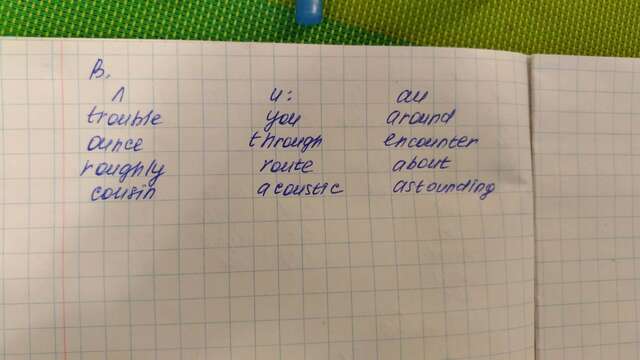 B.
ʌ u: au
trouble you around
ounce through encounter
roughly route about
cousin acoustic astounding